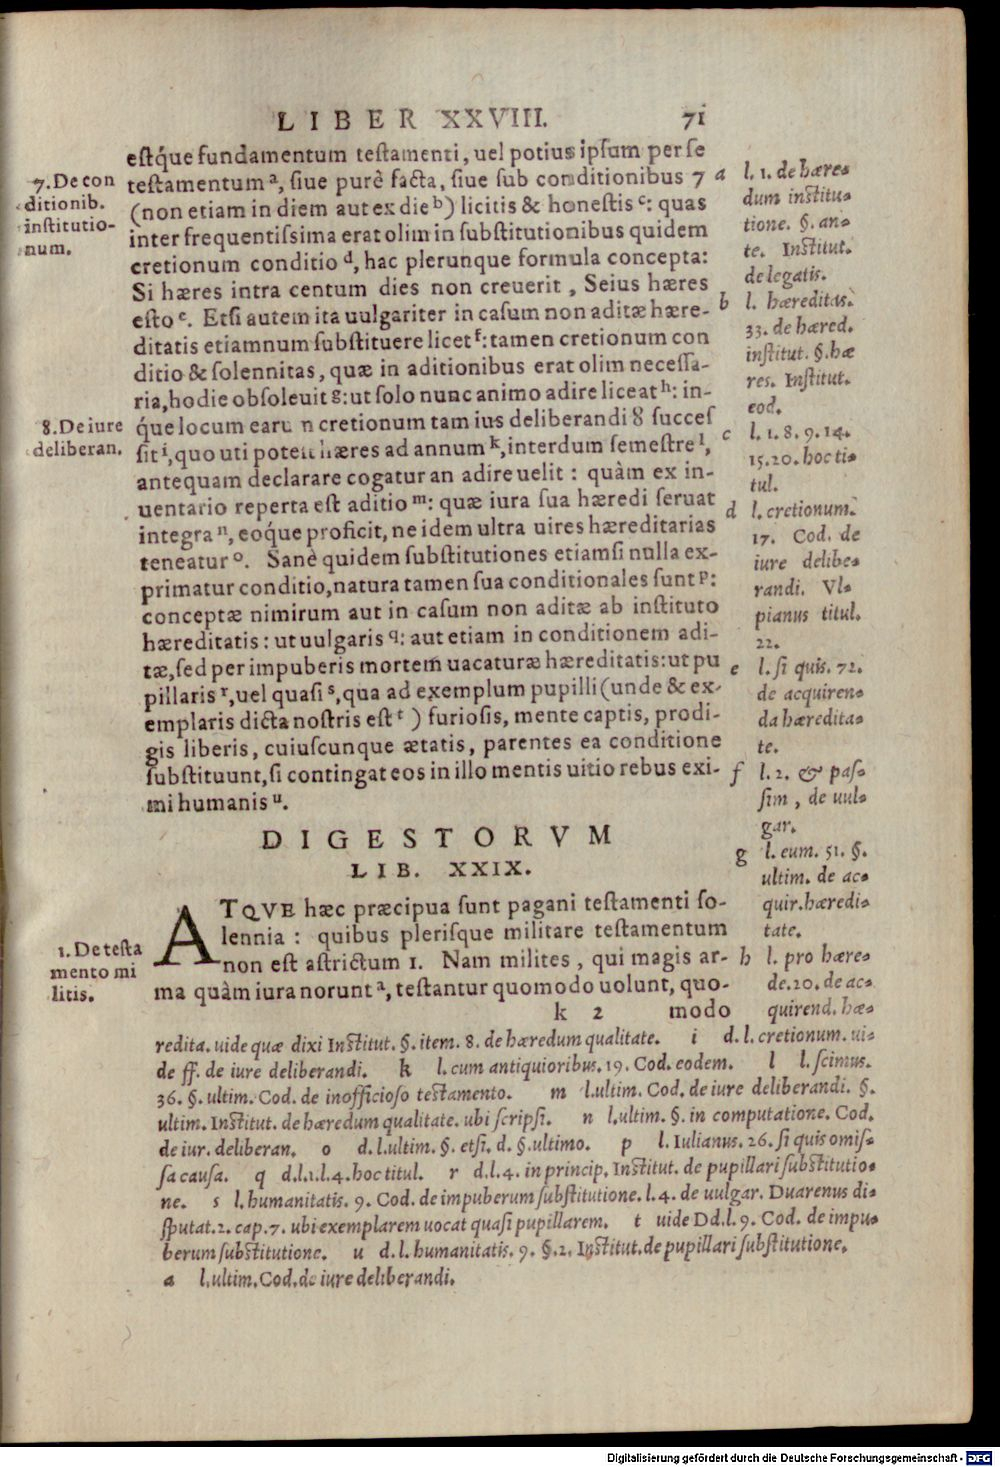 LIBER XXVIII. 71
estq́ue fundamentum testamenti, uel potius ipsum per se
testamentum ᵃ, siue purè facta, siue sub conditionibus 7
(non etiam in diem aut ex die ᵇ) licitis & honestis ᶜ: quas
inter frequentissima erat olim in substitutionibus quidem
cretionum conditio ᵈ, hac plerunque formula concepta:
Si hæres intra centum dies non creuerit, Seius hæres
esto ᵉ. Etsi autem ita uulgariter in casum non aditæ hære-
ditatis etiamnum substituere licet ᶠ: tamen cretionum con
ditio & solennitas, quæ in aditionibus erat olim necessa-
ria, hodie obsoleuit g: ut solo nunc animo adire liceat ʰ: in-
q́ue locum earu n cretionum tam ius deliberandi 8 succes
sit ⁱ, quo uti potest hæres ad annum ᵏ, interdum semestre ˡ,
antequam declarare cogatur an adire uelit: quàm ex in-
uentario reperta est aditio ᵐ: quæ iura sua hæredi seruat
integra ⁿ, eoq́ue proficit, ne idem ultra uires hæreditarias
teneatur ᵒ. Sanè quidem substitutiones etiamsi nulla ex-
primatur conditio, natura tamen sua conditionales sunt ᵖ:
conceptæ nimirum aut in casum non aditæ ab instituto
hæreditatis: ut uulgaris q: aut etiam in conditionem adi-
tæ, sed per impuberis mortem uacaturæ hæreditatis: ut pu
pillaris ʳ, uel quasi ˢ, qua ad exemplum pupilli (unde & ex-
emplaris dicta nostris est ᵗ) furiosis, mente captis, prodi-
gis liberis, cuiuscunque ætatis, parentes ea conditione
substituunt, si contingat eos in illo mentis uitio rebus exi-
mi humanis ᵘ.
7. De con
ditionib.
institutio-
num.
8. De iure
deliberan.
a l. 1. de hære-
dum institu-
tione. §. an-
te. Institut.
de legatis.
b l. hæreditas.
33. de hæred.
institut. §. hæ
res. Institut.
eod.
c l. 1. 8. 9. 14.
15. 20. hoc ti-
tul.
d l. cretionum.
17. Cod. de
iure delibe-
randi. Vl-
pianus titul.
22.
e l. si quis. 72.
de acquiren-
da hæredita-
te.
f l. 2. & pas-
sim, de uul-
gar.
g l. eum. 51. §.
ultim. de ac-
quir. hæredi-
tate.
h l. pro hære-
de. 20. de ac-
quirend. hæ-
DIGESTORVM
LIB. XXIX.
ATQVE hæc præcipua sunt pagani testamenti so-
lennia: quibus plerisque militare testamentum
non est astrictum 1. Nam milites, qui magis ar-
ma quàm iura norunt ᵃ, testantur quomodo uolunt, quo-
k 2 modo
1. De testa
mento mi
litis.
redita. uide quæ dixi Institut. §. item. 8. de hæredum qualitate. i d. l. cretionum. ui-
de ff. de iure deliberandi. k l. cum antiquioribus. 19. Cod. eodem. l l. scimus.
36. §. ultim. Cod. de inofficioso testamento. m l. ultim. Cod. de iure deliberandi. §.
ultim. Institut. de hæredum qualitate. ubi scripsi. n l. ultim. §. in computatione. Cod.
de iur. deliberan. o d. l. ultim. §. etsi. d. §. ultimo. p l. Iulianus. 26. si quis omis-
sa causa. q d. l. 1. l. 4. hoc titul. r d. l. 4. in princip. Institut. de pupillari substitutio-
ne. s l. humanitatis. 9. Cod. de impuberum substitutione. l. 4. de uulgar. Duarenus di-
sputat. 2. cap. 7. ubi exemplarem uocat quasi pupillarem. t uide Dd. l. 9. Cod. de impu-
berum substitutione. u d. l. humanitatis. 9. §. 2. Institut. de pupillari substitutione.
a l. ultim. Cod. de iure deliberandi.
Digitalisierung gefördert durch die Deutsche Forschungsgemeinschaft - DFG